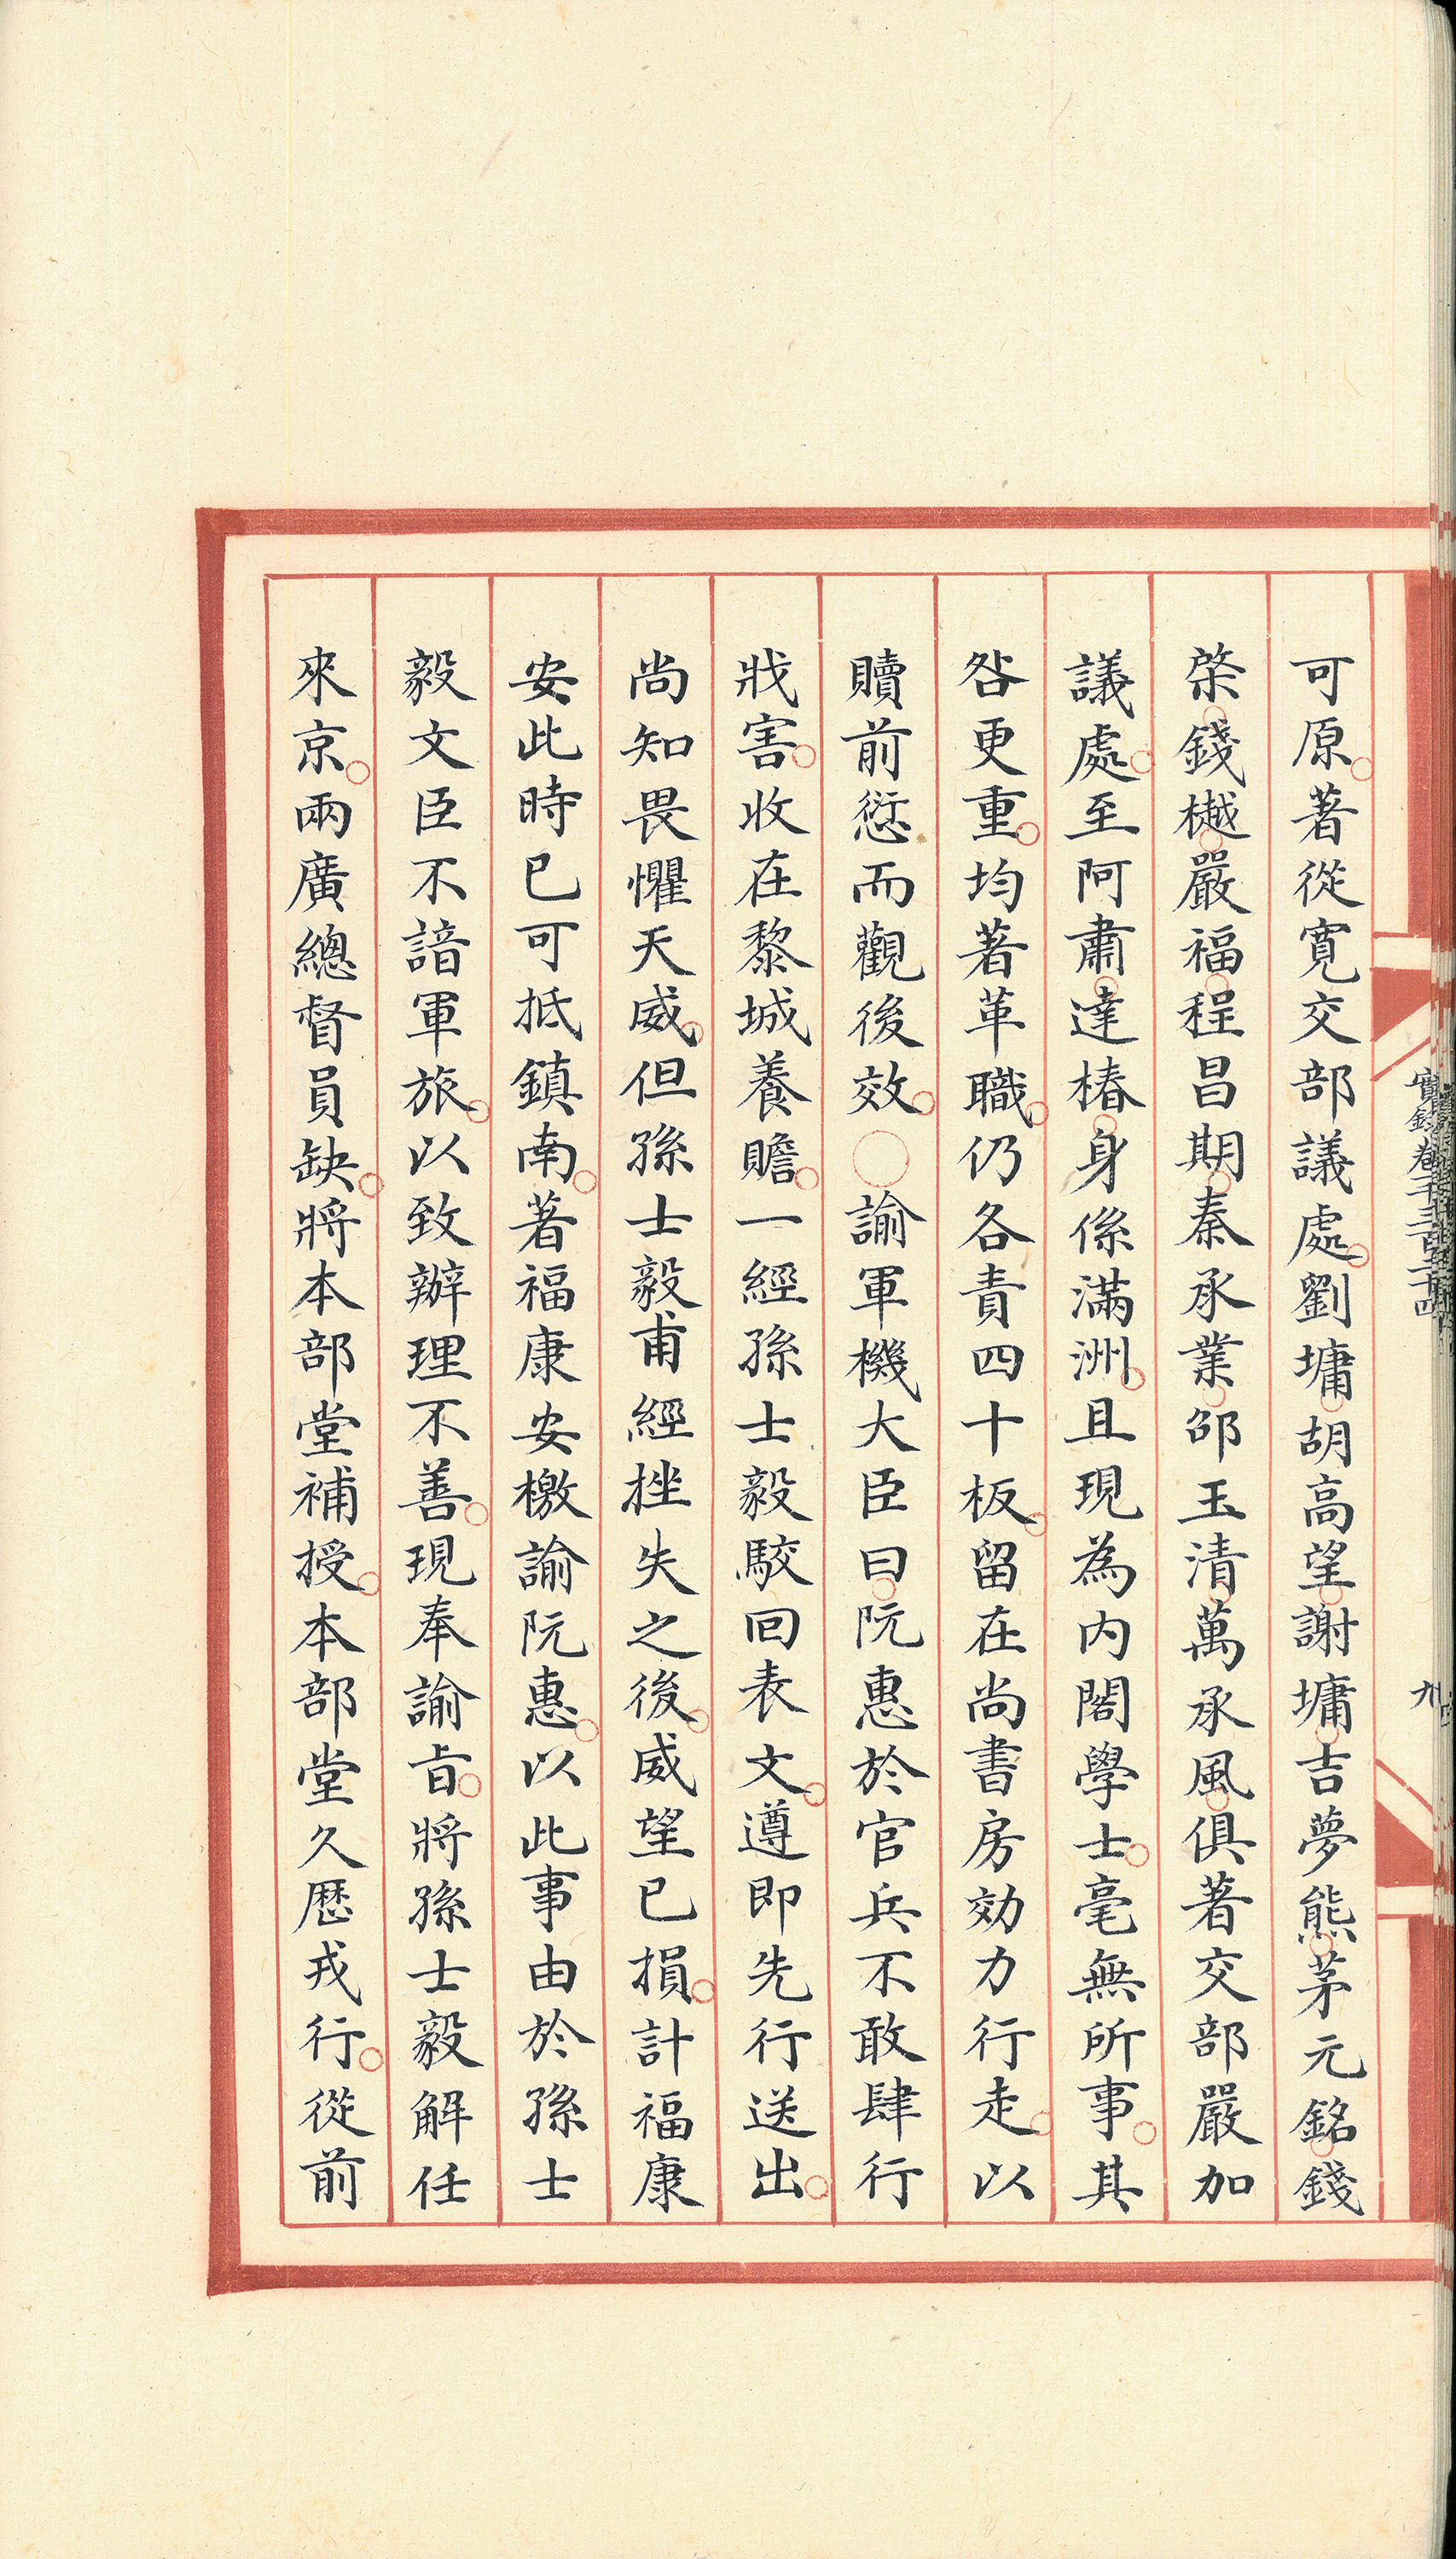 可原。著從寬交部議處。劉墉。胡高望。謝墉。吉夢熊。茅元銘。錢
棨。錢樾。嚴福。程昌期。秦承業。邵玉清。萬承風。俱著交部嚴加
議處。至阿肅。達椿。身係滿洲。且現為內閣學士。毫無所事。其
咎更重。均著革職。仍各責四十板。留在尚書房効力行走。以
贖前愆而觀後效。○諭軍機大臣曰。阮惠於官兵不敢肆行
戕害。收在黎城養贍。一經孫士毅駮回表文。遵即先行送出。
尚知畏懼天威。但孫士毅甫經挫失之後。威望已損。計福康
安此時已可抵鎮南。著福康安檄諭阮惠。以此事由於孫士
毅文臣不諳軍旅。以致辦理不善。現奉諭旨。將孫士毅解任
來京。兩廣總督員缺。將本部堂補授。本部堂久歷戎行。從前
實錄卷千三百二十四
九